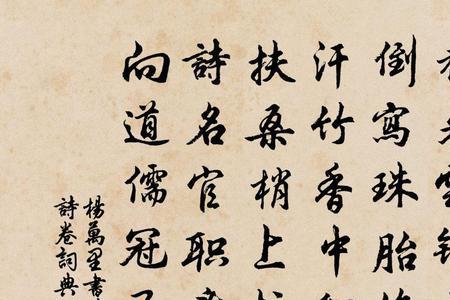 倒寫珠胎
汗竹香中
扶桑梢上
詩名官職
向道儒冠
楊萬里書
詩卷詞典